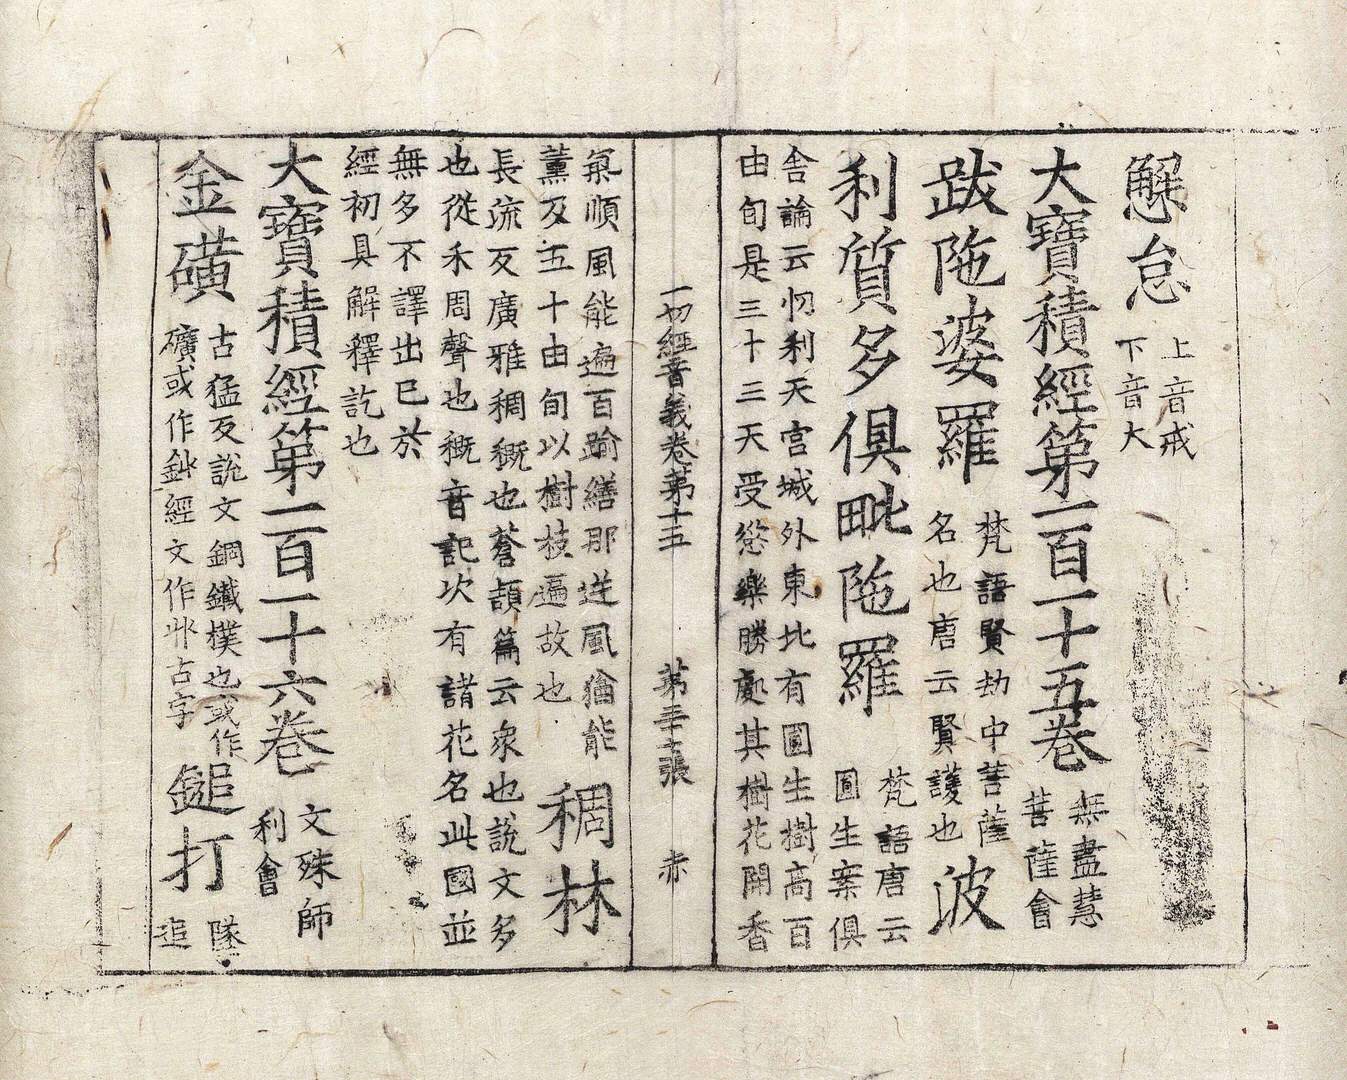 懈怠
上音戒
下音大
大寶積經第一百一十五卷
無盡慧
菩薩會
跋陁婆羅
梵語賢劫中菩薩
名也唐云賢護也
波
利質多俱毗陁羅
梵語唐云
圓生案俱
舎論云忉利天宮城外東北有圓生樹高百
由旬是三十三天受慾樂勝處其樹花開香
一切經音義卷苐十五
苐 張
赤
氣順風能遍百踰繕那逆風猶能
薰及五十由旬以樹枝遍故也
稠林
長流反廣雅稠穊也蒼頡篇云衆也說文多
也從禾周聲也穊音記次有諸花名此國並
無多不譯出已於
經初具解釋訖也
大寶積經第一百一十六卷
文殊師
利會
金磺
古猛反說文銅鐵樸也或作
礦或作 經文作卝古字
鎚打
墜
追